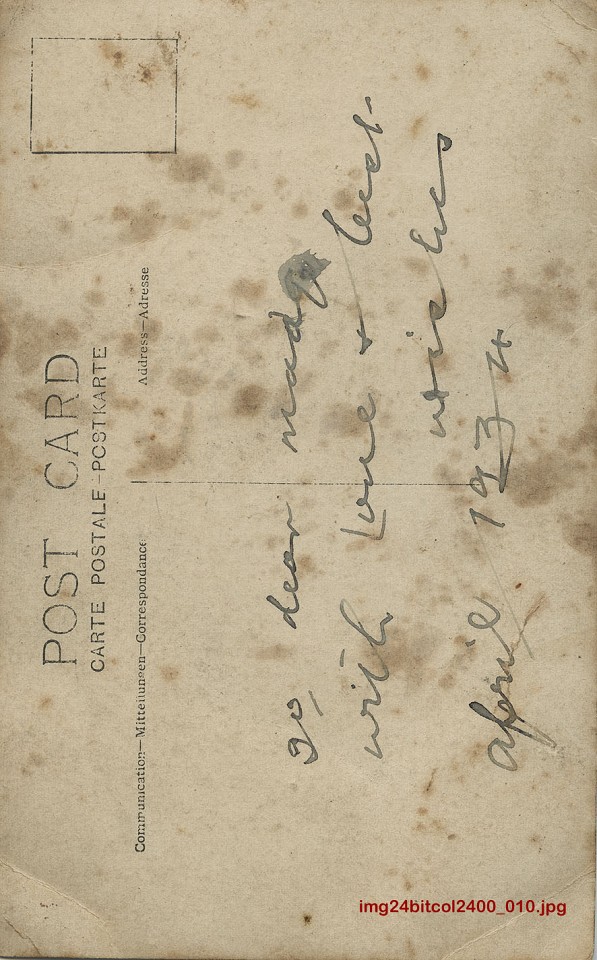 POST CARD
CARTE POSTALE-POSTKARTE
Communication—Mitteilungen—Correspondance
Address—Adresse
To dear madge
with Love + best
wishes
April 1934
img24bitcol2400_010.jpg